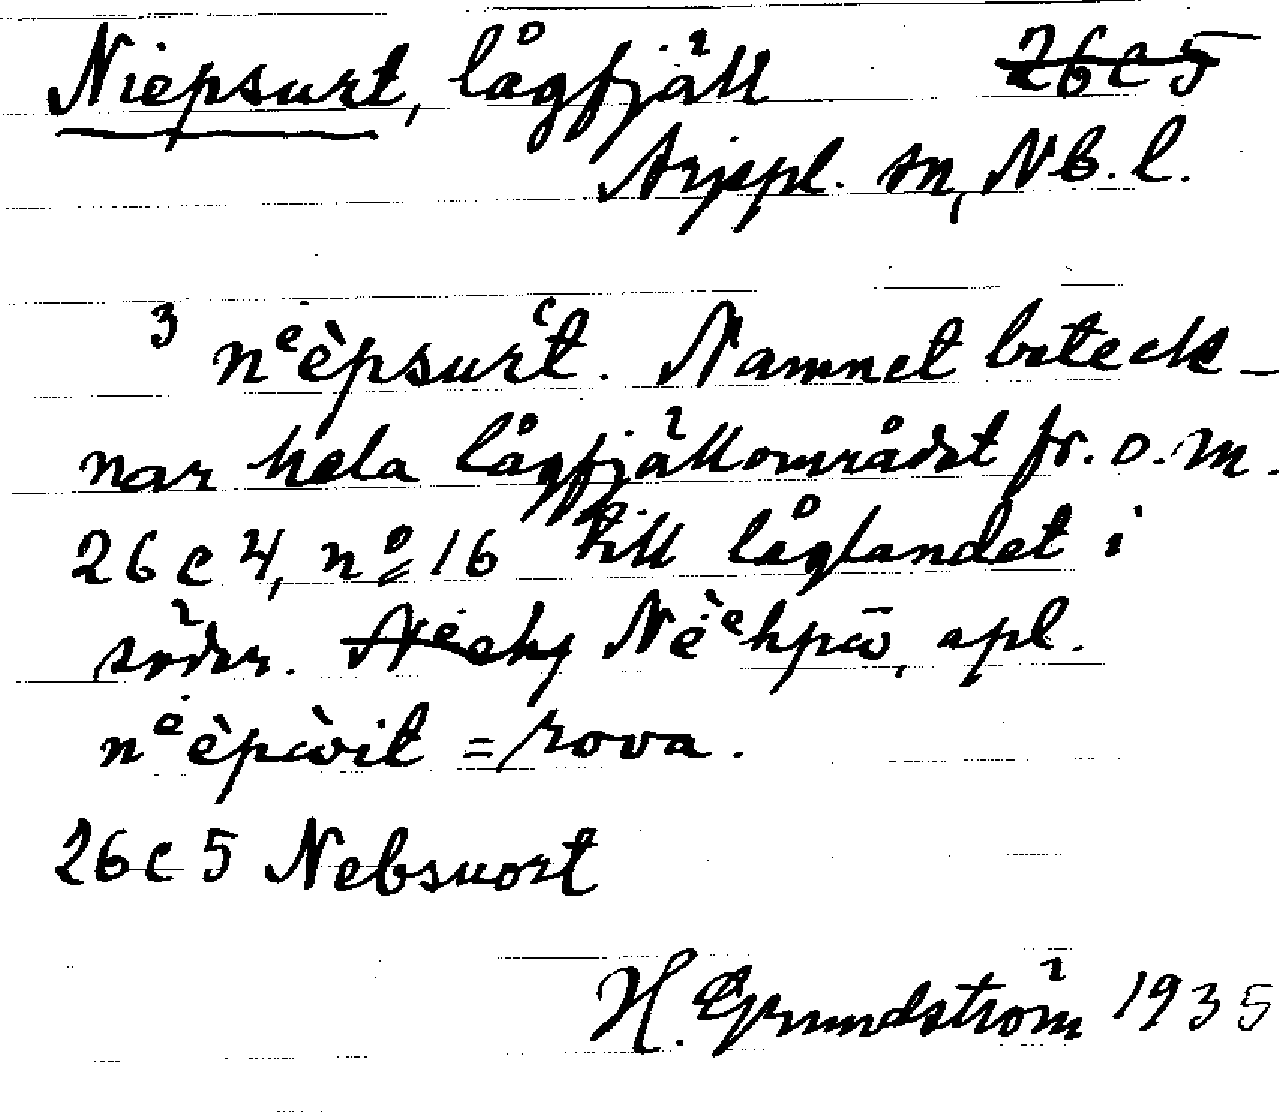 Niepsurt, lågfjäll 26 C 5
Arjepl. sn, Nb. l.
3 nᵉèpsurt̒. Namnet beteck-
nar hela lågfjällområdet fr. o. m.
26 C 4, nº 16 till låglandet i
söder. Nèᵉhpā, apl.
nᵉèpàvit = rova.
26 C 5 Nebsuort
H. Grundström 1935